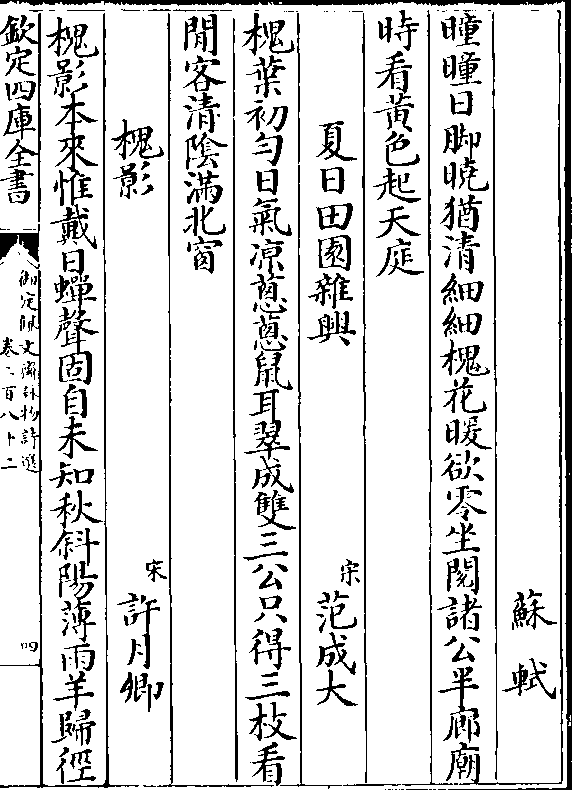 蘇軾
曈曈日脚曉猶清細細槐花暖欲零坐閱諸公半廊廟
時看黃色起天庭
夏日田園雜興
宋 范成大
槐葉初勻日氣凉蔥蔥鼠耳翠成雙三公只得三枝看
閒客清陰滿北窗
槐影
宋 許月卿
槐影本來惟戴日蟬聲固自未知秋斜陽薄雨羊歸徑
欽定四庫全書
御定佩文齋詠物詩選
卷二百八十二
四